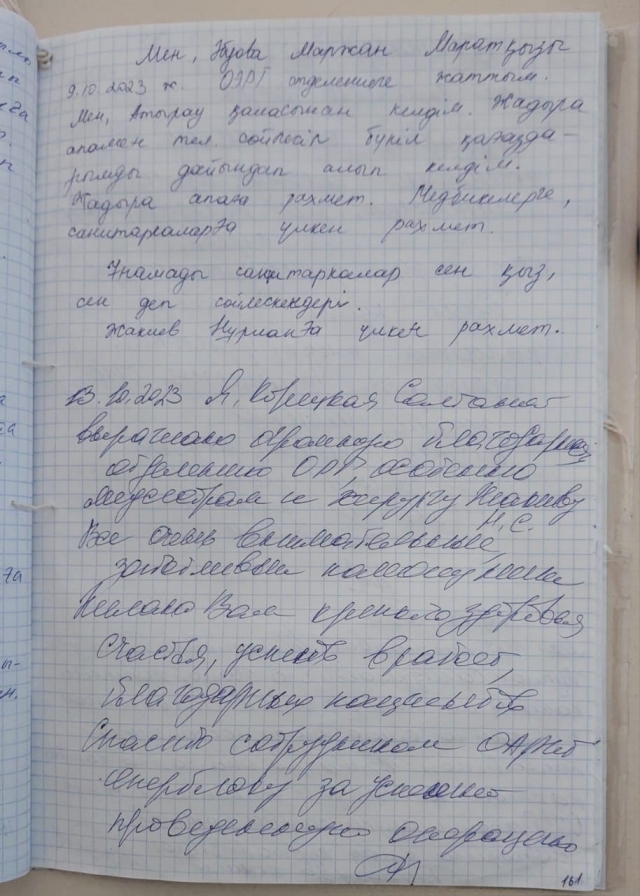 Мен, Маржан Маратқызы
9.10.2023 ж. отделениеге жаттым.
Мен, Атырау қаласынан келдім. Жадыра
апамен тел. сөйлесіп бүкіл қағазда-
рымды дайындап алып келдім.
Жадыра апаға рахмет. Медбикелерге,
санитаркаларға үлкен рахмет.
Ұнамады санитаркалар сен қыз,
сен деп сөйлескендері.
Жакиев Нұрланға үлкен рахмет.
13.10.2023 Я, Корецкая Салтанат
выражаю огромную благодарность
отделению ОРГ, особенно
медсестрам и хирургу Жакиеву
Н.С.
Все очень внимательные,
заботливые
Желаю Вам крепкого здоровья
счастья, успехов в работе,
благодарных пациентов
Спасибо сотрудникам
оперблоку за успешно
проведенную операцию
161